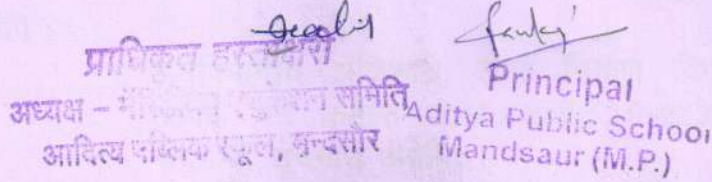 प्राधिकृत हस्ताक्षरी
अध्यक्ष – एजुकेशन समिति
आदित्य पब्लिक स्कूल, मन्दसौर
Principal
Aditya Public School
Mandsaur (M.P.)